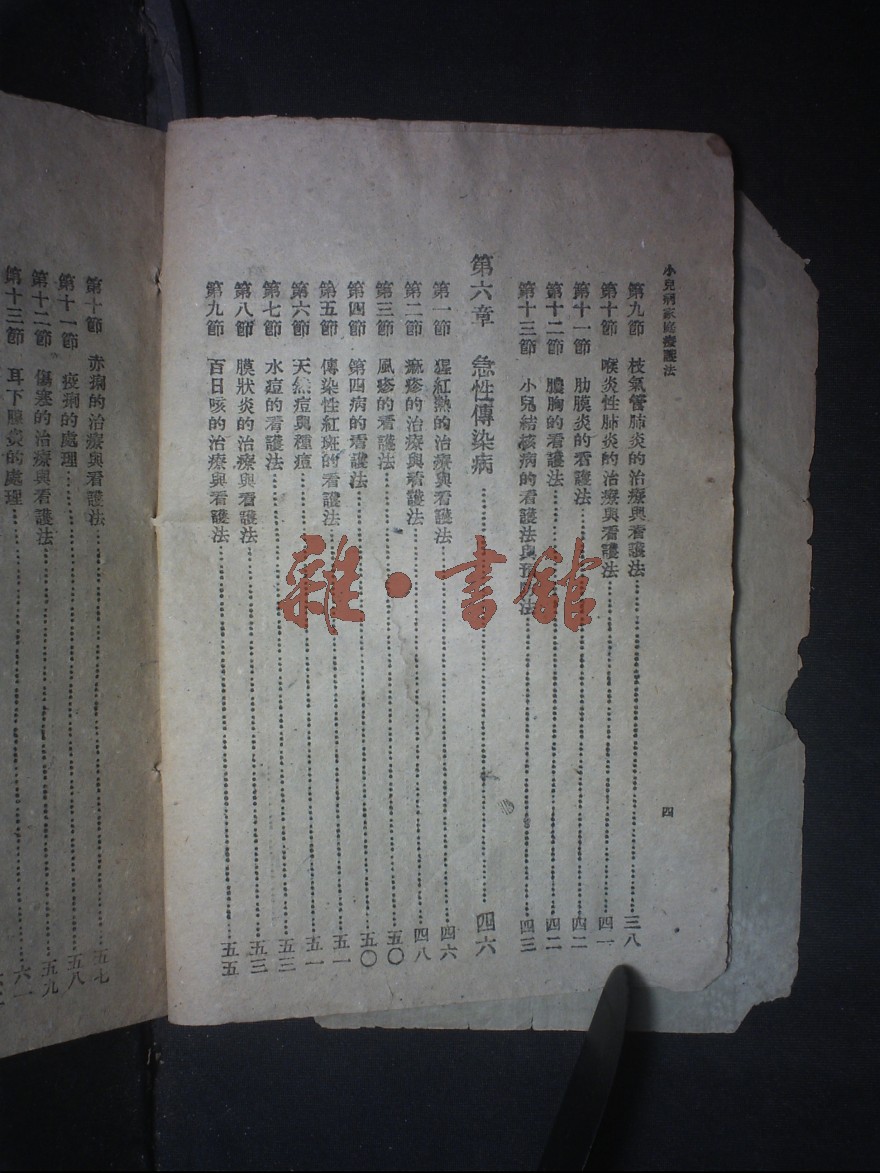 小兒病家庭療護法
四
第九節 枝氣管肺炎的治療與看護法 三八
第十節 喉炎性肺炎的治療與看護法 四一
第十一節 肋膜炎的看護法 四二
第十二節 膿胸的看護法 四二
第十三節 小兒結核病的看護法與預防法 四三
第六章 急性傳染病 四六
第一節 猩紅熱的治療與看護法 四六
第二節 麻疹的治療與看護法 四八
第三節 風疹的看護法 五〇
第四節 第四病的看護法 五〇
第五節 傳染性紅斑的看護法 五一
第六節 天然痘與種痘 五一
第七節 水痘的看護法 五三
第八節 膜狀炎的治療與看護法 五三
第九節 百日咳的治療與看護法 五五
第十節 赤痢的治療與看護法 五七
第十一節 疫痢的處理 五八
第十二節 傷寒的治療與看護法 五九
第十三節 耳下腺炎的處理 六一
雜·書館